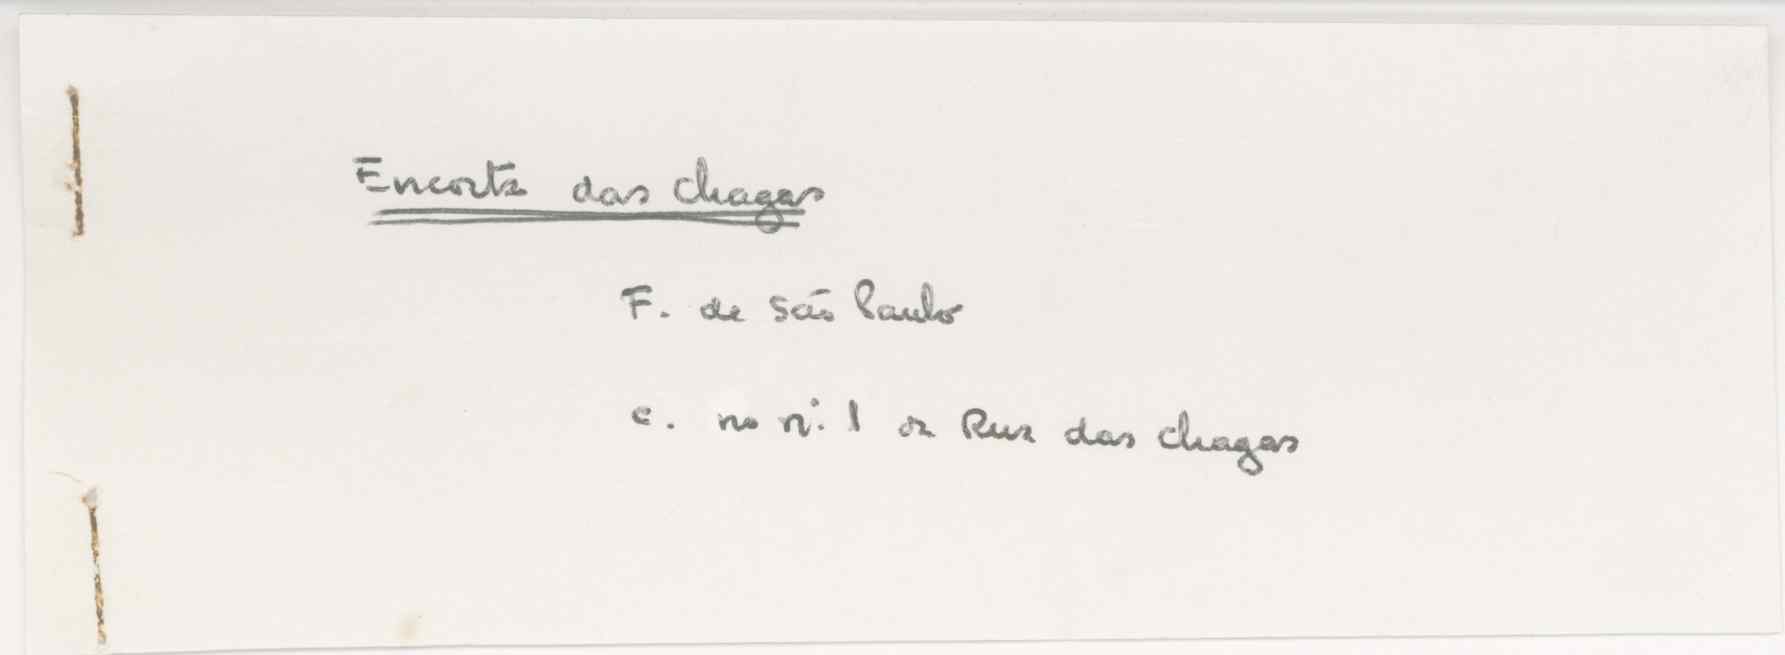 Encosta das Chagas
F. de São Paulo
C. no nº. 1 da Rua das Chagas